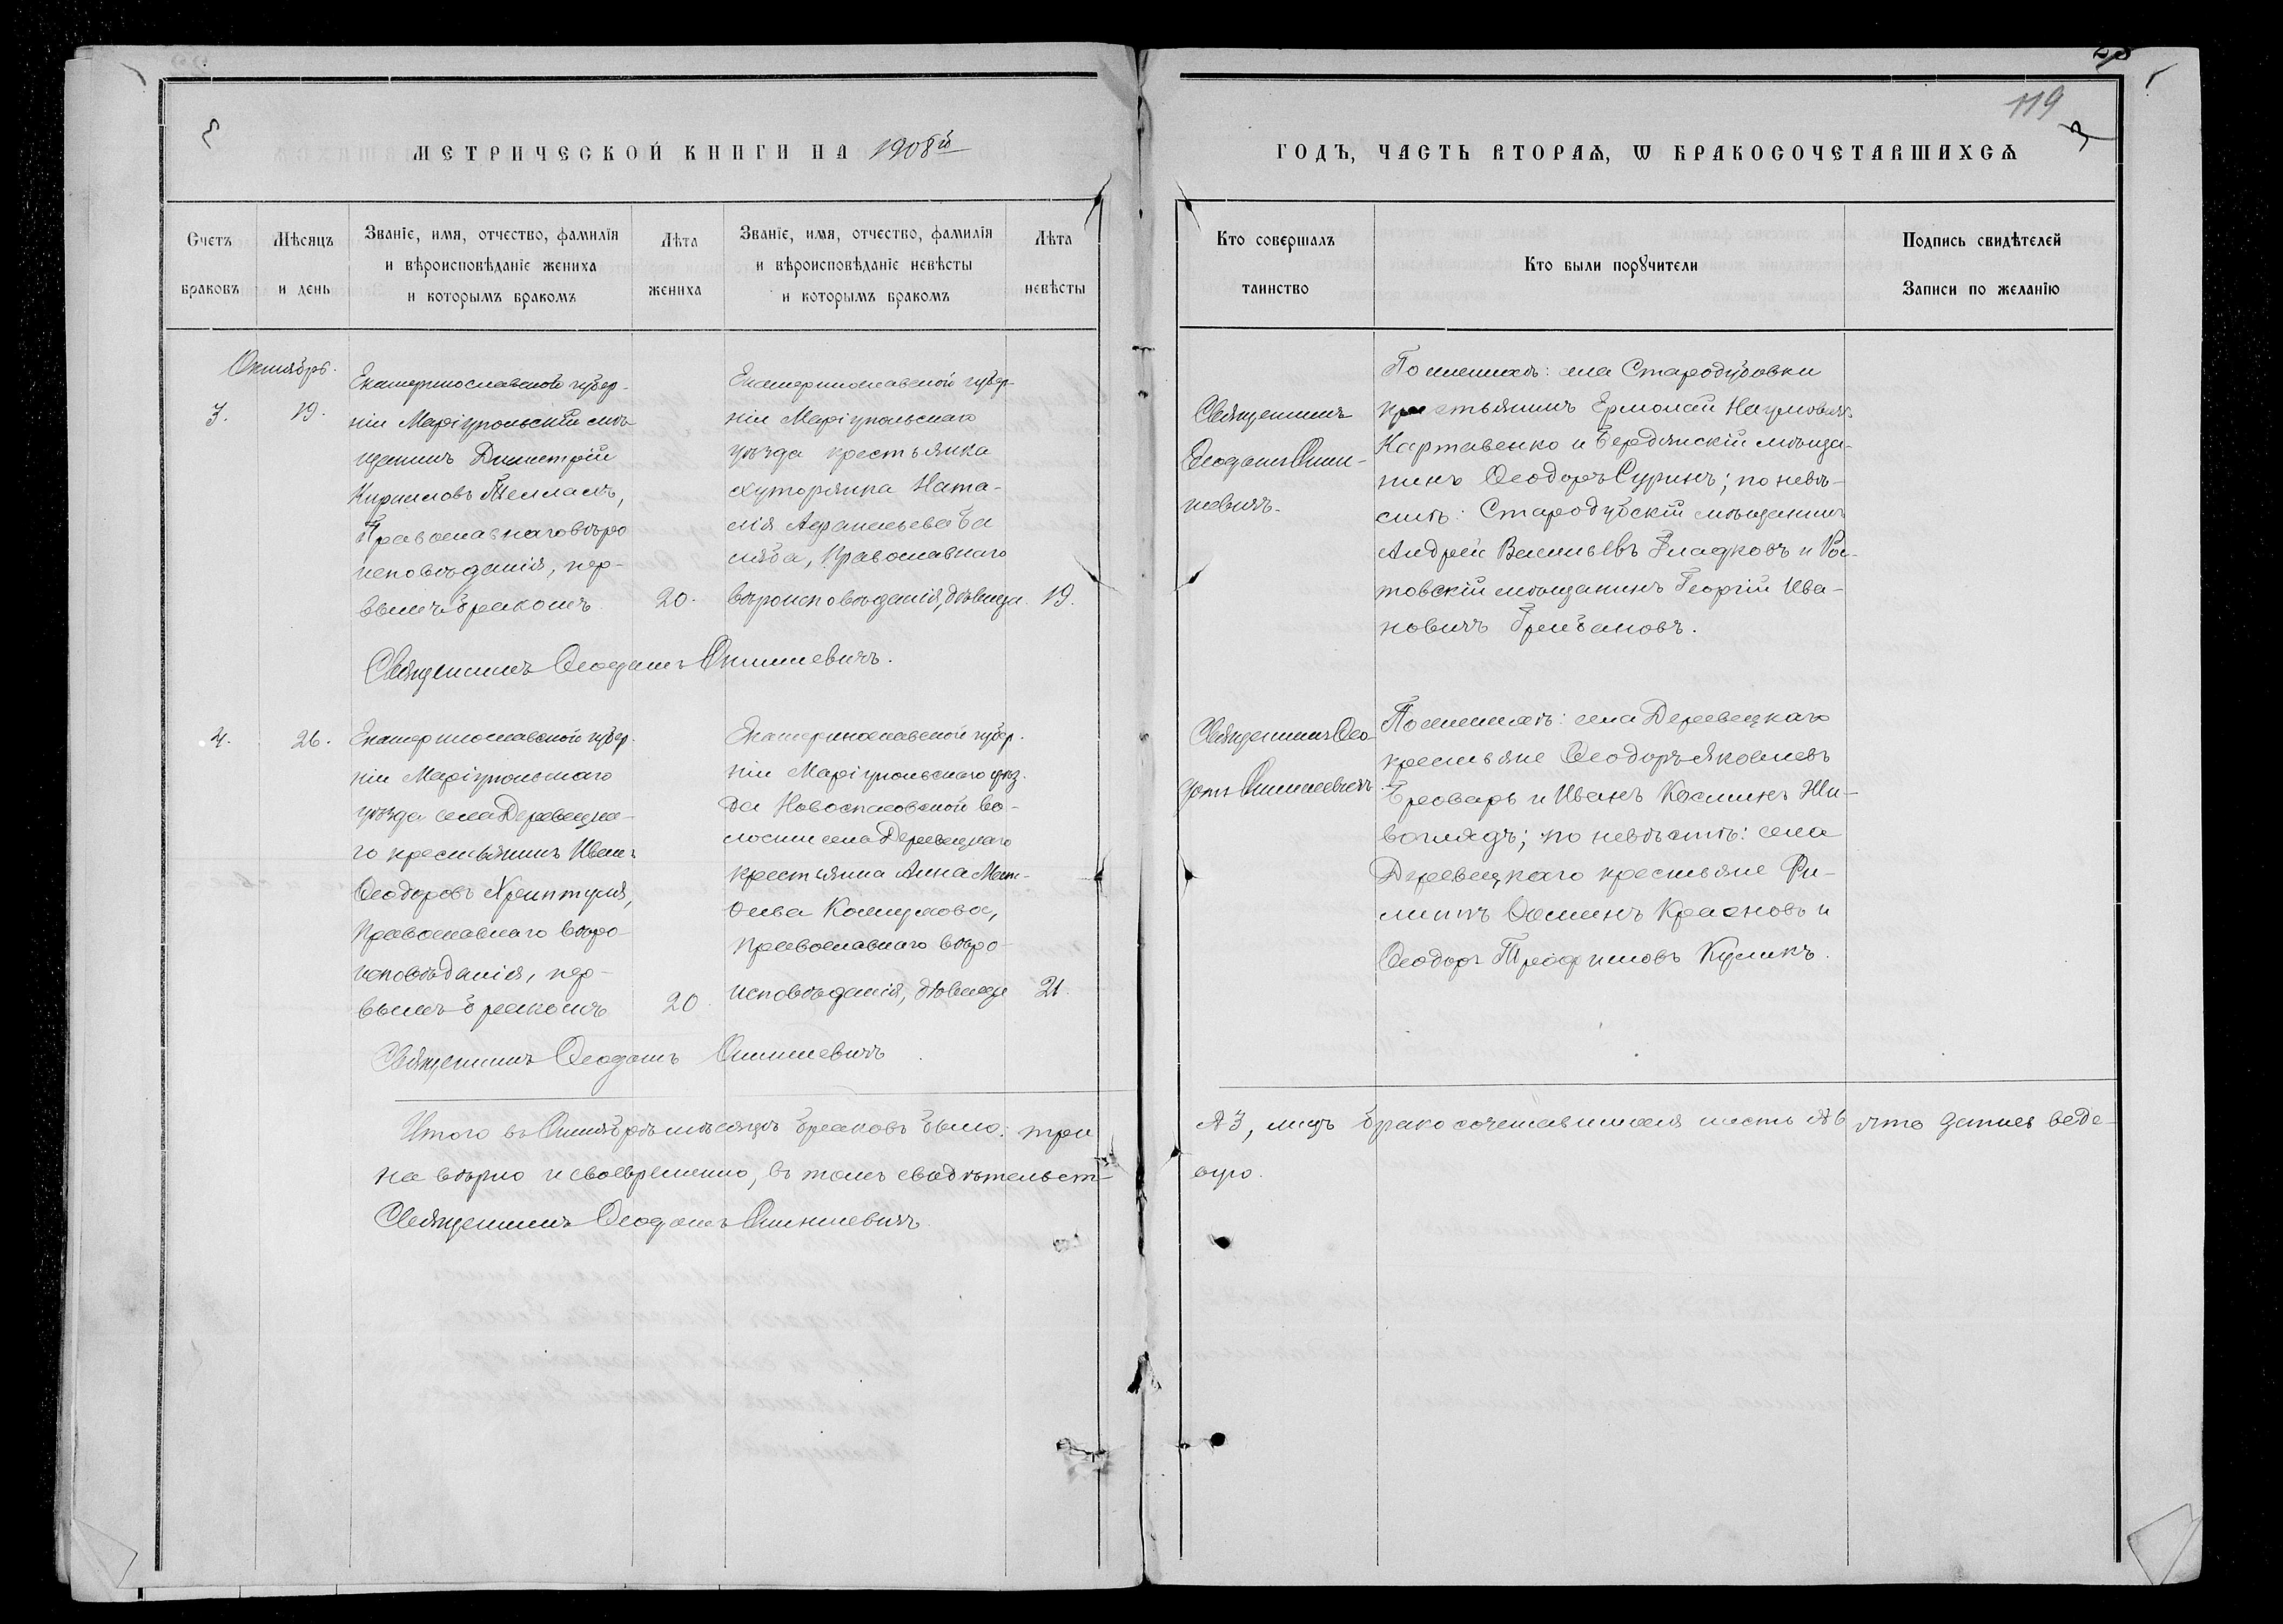 28
119
МЕТРИЧЕСКОЙ КНИГИ НА 1908й
ГОДЪ, ЧАСТЬ ВТОРАѦ, Ѡ БРАКОСОЧЕТАВШИХСѦ
Счетъ
браковъ
Мѣсяцъ
и день
Званіе, имя, отчество, фамилія
и вѣроисповѣданіе жениха
и которымъ бракомъ
Лѣта
жениха
Званіе, имя, отчество, фамилія
и вѣроисповѣданіе невѣсты
и которымъ бракомъ
Лѣта
невѣсты
Кто совершалъ
таинство
Кто были порꙋчители
Подпись свидѣтелей
Записи по желанію
Октябрь.
3.
19.
Екатеринославской губер-
ніи Маріупольскій мѣ-
щанинъ Димитрій
Кирилловъ
Православнаго вѣро
исповѣданія, пер-
вымъ бракомъ
20.
Екатеринославской губер-
ніи Маріупольскаго
уѣзда крестьянка
хуторянка Ната-
лія Афанасьева Ба
ляба, Православнаго
вѣроисповѣданія, дѣвица.
19.
Священникъ
Ѳеодотъ
По женихѣ: села Стародубовки
крестьянинъ Ермолай Наумовичъ
Картавенко и Бердянскій мѣща-
нинъ Ѳеодоръ Суринъ; по невѣ-
стѣ: Стародубскій мѣщанинъ
Андрей Васильевъ Гладковъ и Рос-
товскій мѣщанинъ Георгій Ива-
новичъ Грибановъ.
Священникъ Ѳеодотъ
4.
26.
Екатеринославской губер.
ніи Маріупольскаго
уѣзда села Деревецка-
го крестьянинъ Иванъ
Ѳеодоровъ Хриптуля,
Православнаго вѣро-
исповѣданія, пер-
вымъ бракомъ
20.
Екатеринославской губер.
ніи Маріупольскаго уѣз.
да Новоспасовской во-
лости села Деревецкаго
крестьянка Анна Мат-
ѳиева
Православнаго вѣро-
исповѣданія, дѣвица
21.
Священникъ Ѳео-
дотъ
По женихѣ: села Деревецкаго
крестьяне Ѳеодоръ Яковлевъ
Броварь и Иванъ Косминъ Жи-
воглядъ; по невѣстѣ: села
Деревецкаго крестьяне Фи-
липпъ Ѳоминъ Красновъ и
Ѳеодоръ Трофимовъ Куликъ.
Священникъ Ѳеодотъ
Итого въ Октябрѣ мѣсяцѣ браковъ было: три
№ 3, лицъ бракосочетавшихся шесть № 6 что запись веде-
на вѣрно и своевременно, въ томъ свидѣтельст-
вую.
Священникъ Ѳеодотъ